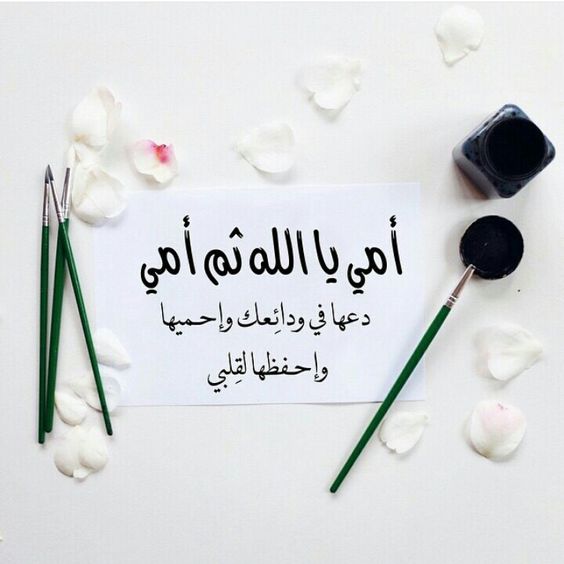 أمي يا الله ثم أمي
دعها في ودائِعك وإحميها
وإحفظها لقِلبي